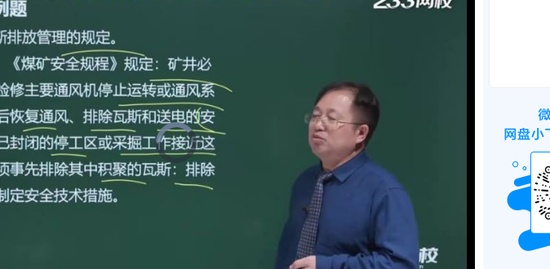 233网校
例题
斯排放管理的规定。
《煤矿安全规程》规定：矿井必
检修主要通风机停止运转或通风系
后恢复通风、排除瓦斯和送电的安
已封闭的停工区或采掘工作接近这
须事先排除其中积聚的瓦斯：排除
制定安全技术措施。
网校
微
网盘小